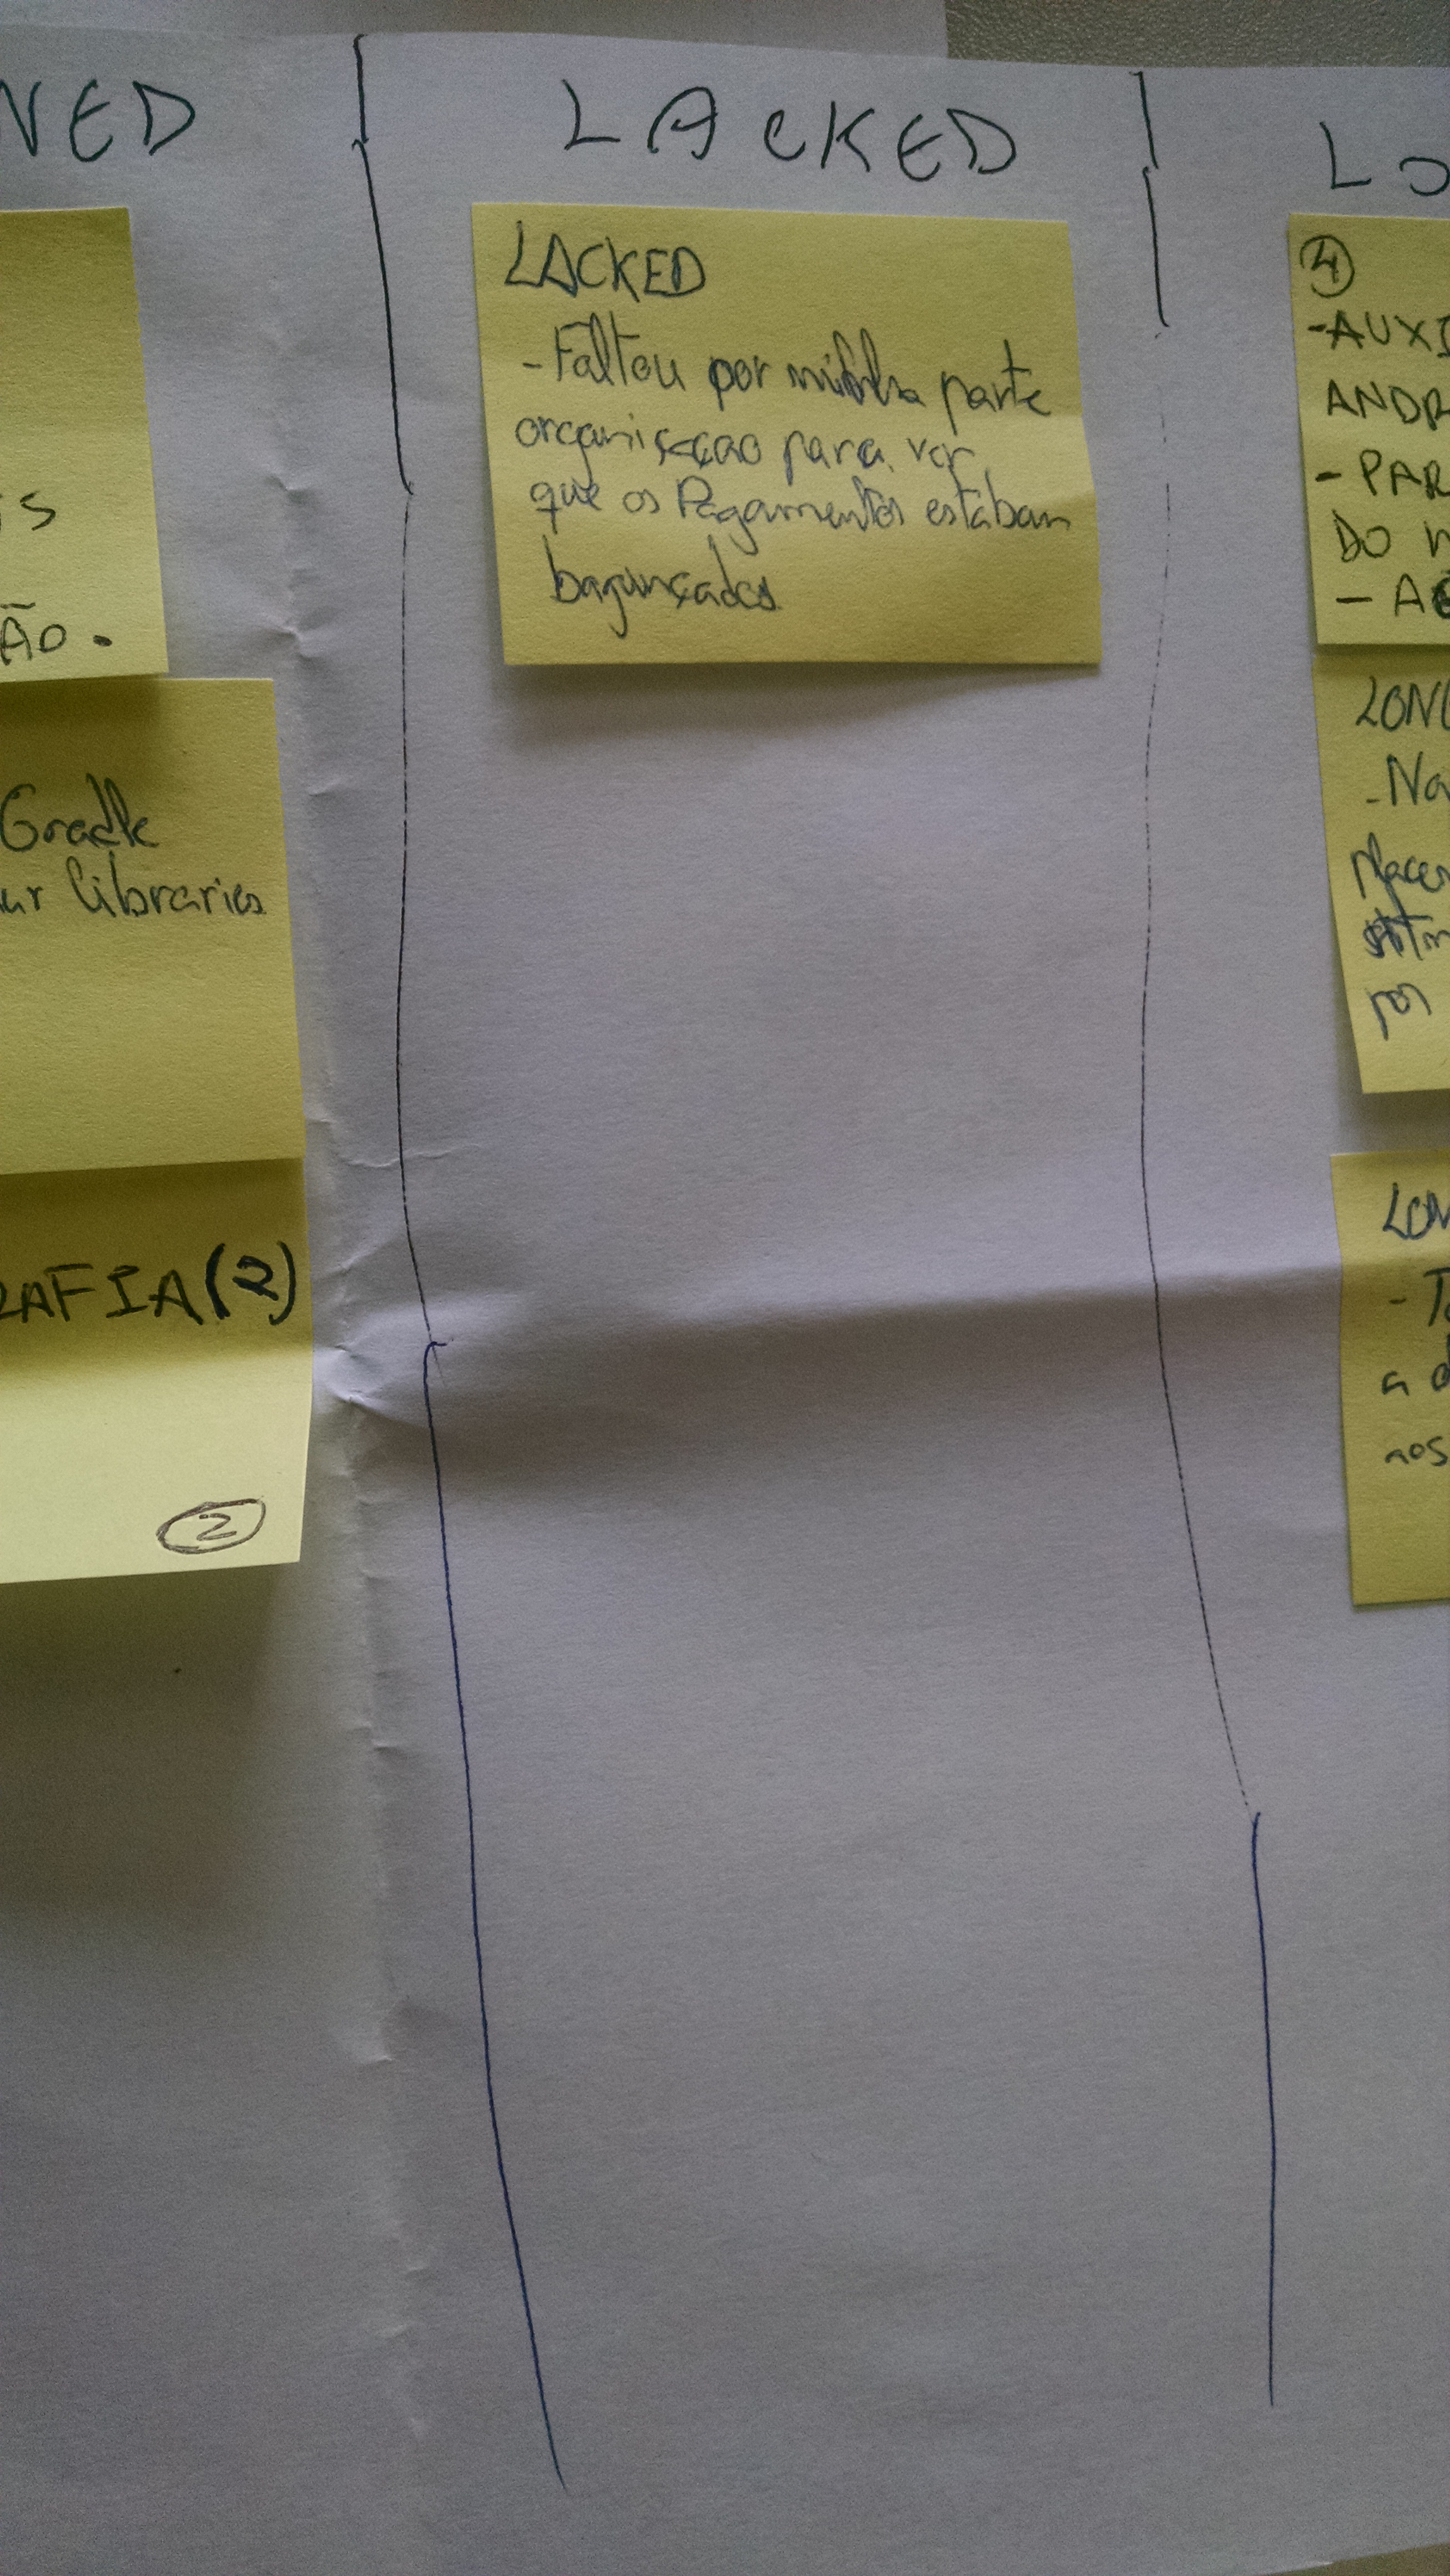 NED
LACKED
LO
IS
ÃO.
Gradle
ur libraries
RAFIA(2)
2
LACKED
- Faltou por minha parte
organisaçao para ver
que os Pagamentos estaban
bagunçados
4
-AUXI
ANDR
- PAR
DO
- A
LONG
- No
placer
por
LON
- T
a d
aos